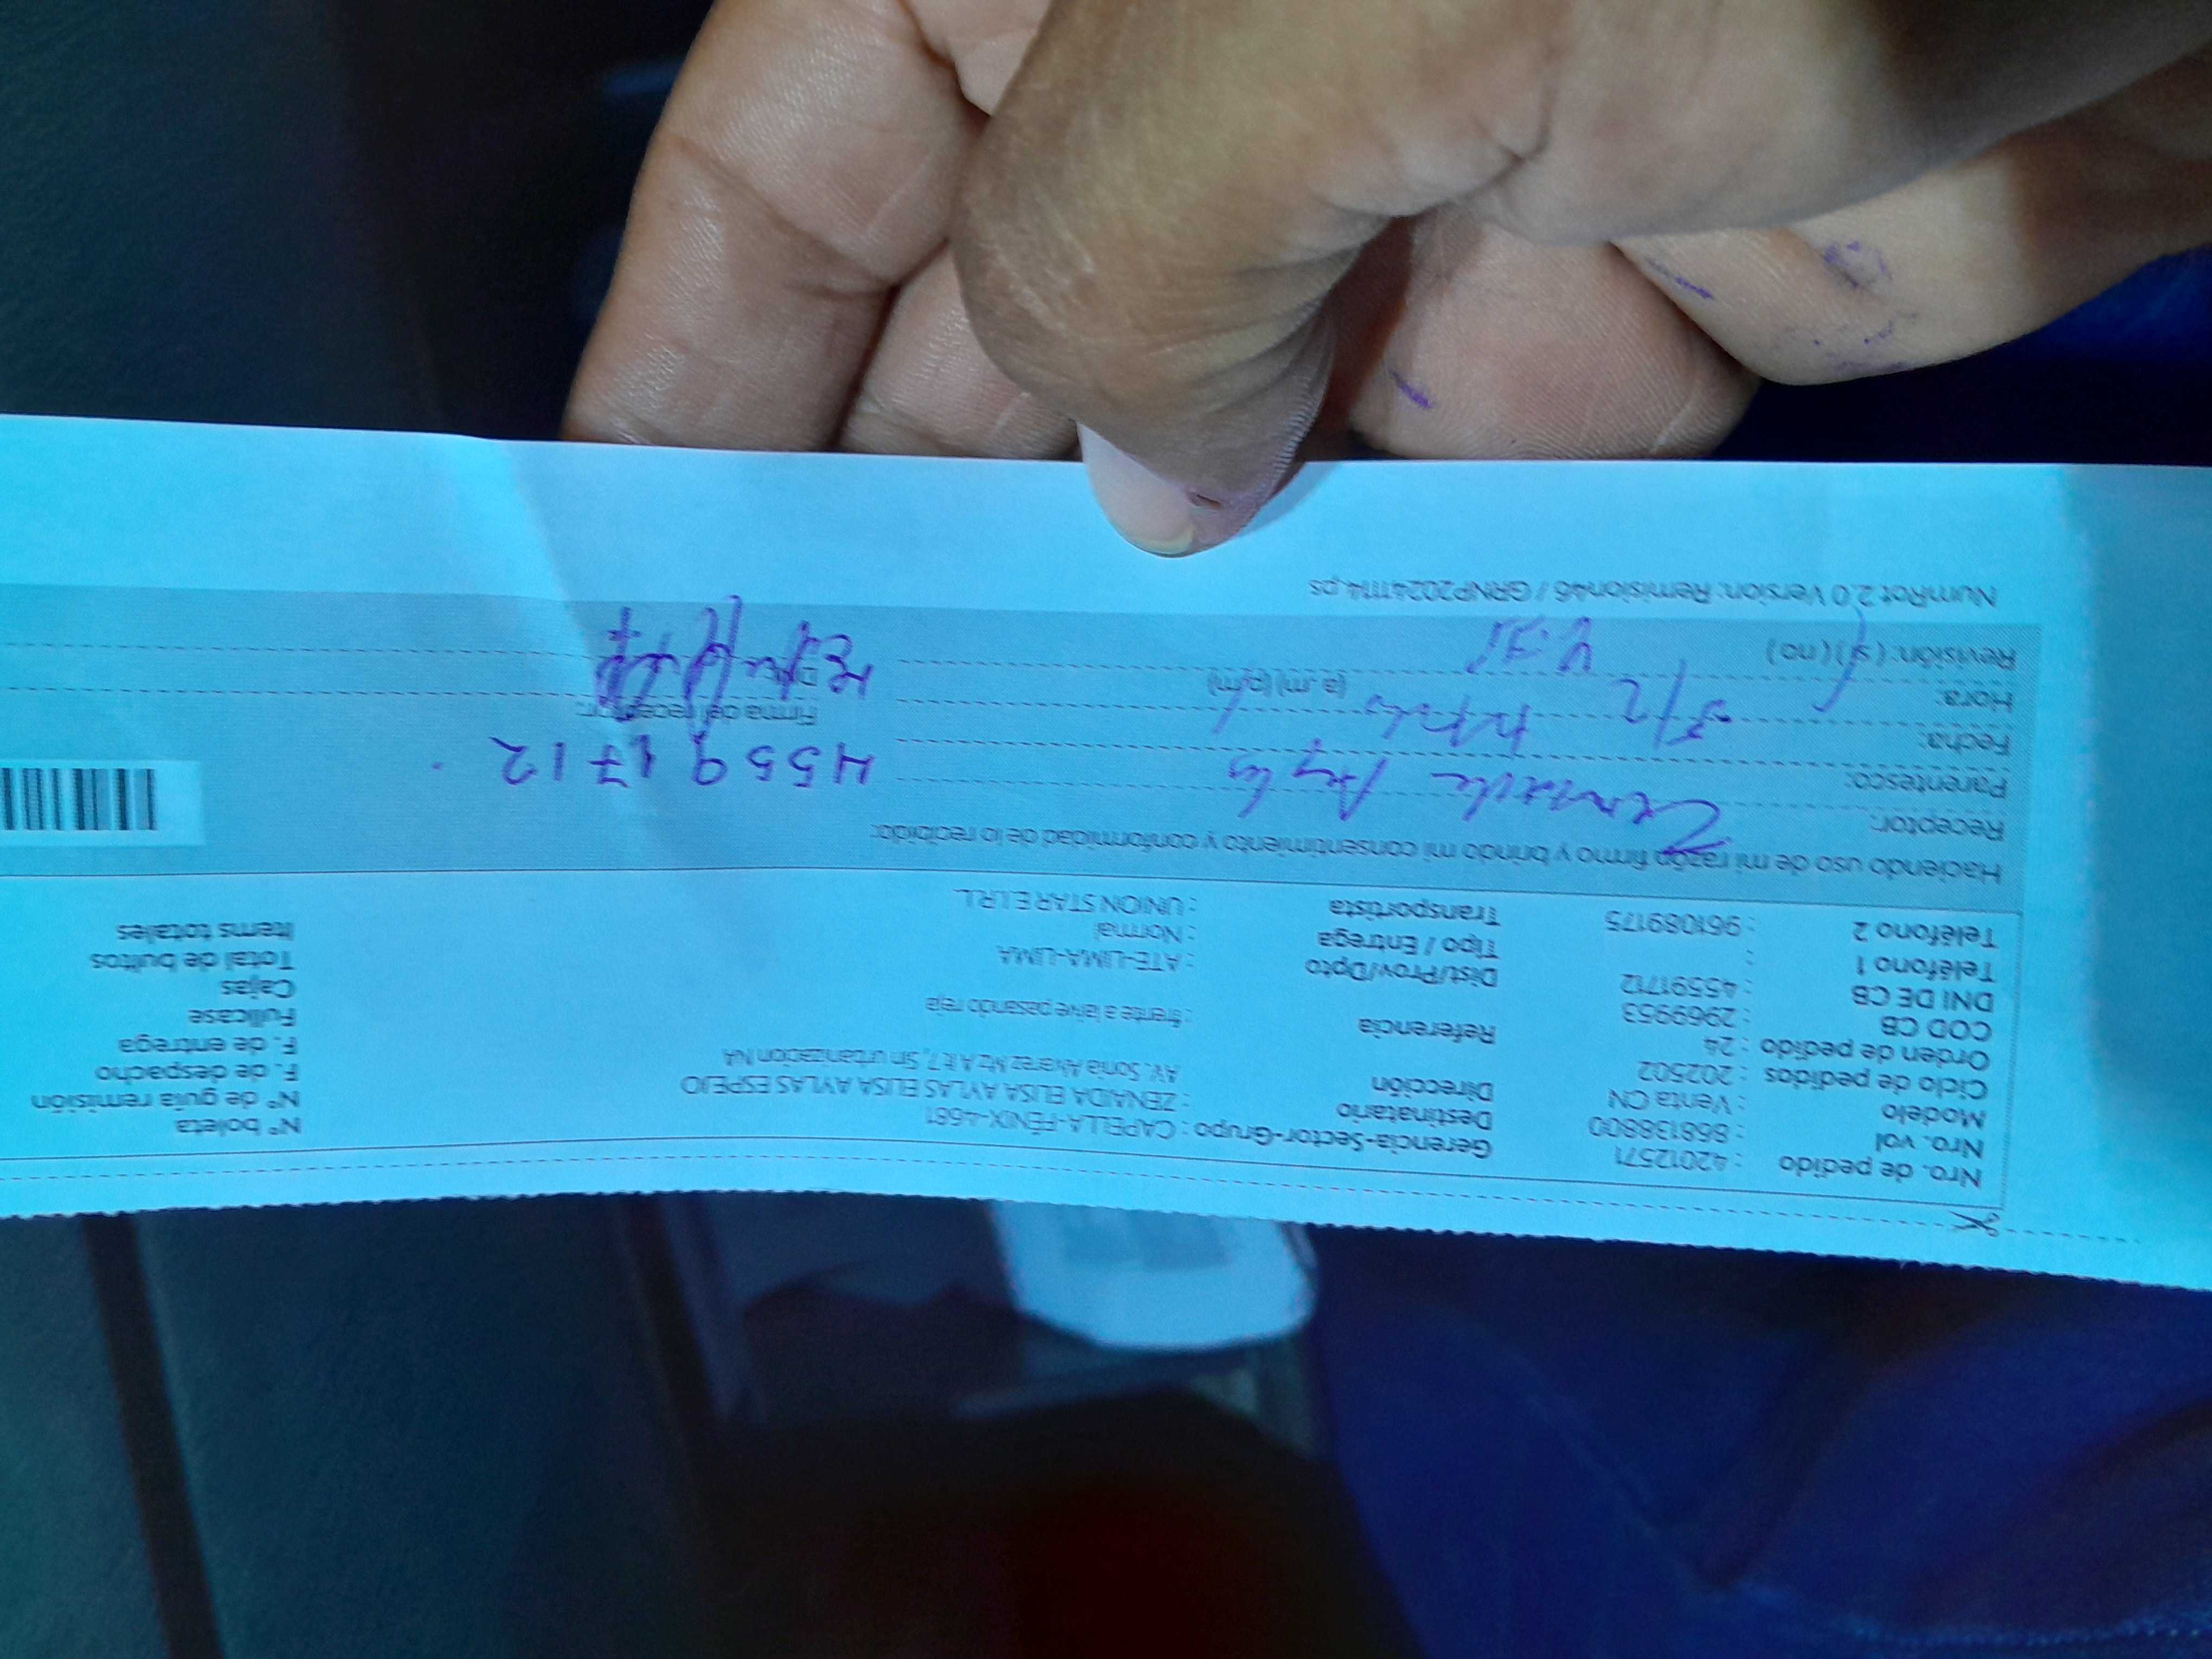 Nro. de pedido : 42012571
Nro. vol : 868138800
Modelo : Venta CN
Ciclo de pedidos : 202502
Orden de pedido : 24
COD CB : 2969953
DNI DE CB : 45591712
Teléfono 1 :
Teléfono 2 : 961089175
Gerencia-Sector-Grupo : CAPELLA-FÉNIX-4681
Destinatario : ZENAIDA ELISA AYLAS ELISA AYLAS ESPEJO
Dirección AV. Sonia Alvarez Mz A lt 7, Sin urbanizacion NA
Referencia : frente a laive pasando reja
Dist/Prov/Dpto : ATE-LIMA-LIMA
Tipo / Entrega : Normal
Transportista : UNION STAR E.I.R.L.
N° boleta
N° de guía remisión
F. de despacho
F. de entrega
Fullcase
Cajas
Total de bultos
Items totales
Haciendo uso de mi razón firmo y brindo mi consentimiento y conformidad de lo recibido:
Receptor:
Parentesco:
Fecha:
Hora: (a.m) (p.m)
Revisión: (si) (no)
45591712
Firma del receptor:
NumRot 2.0 Version: Remision46 / GRNP20241114.ps